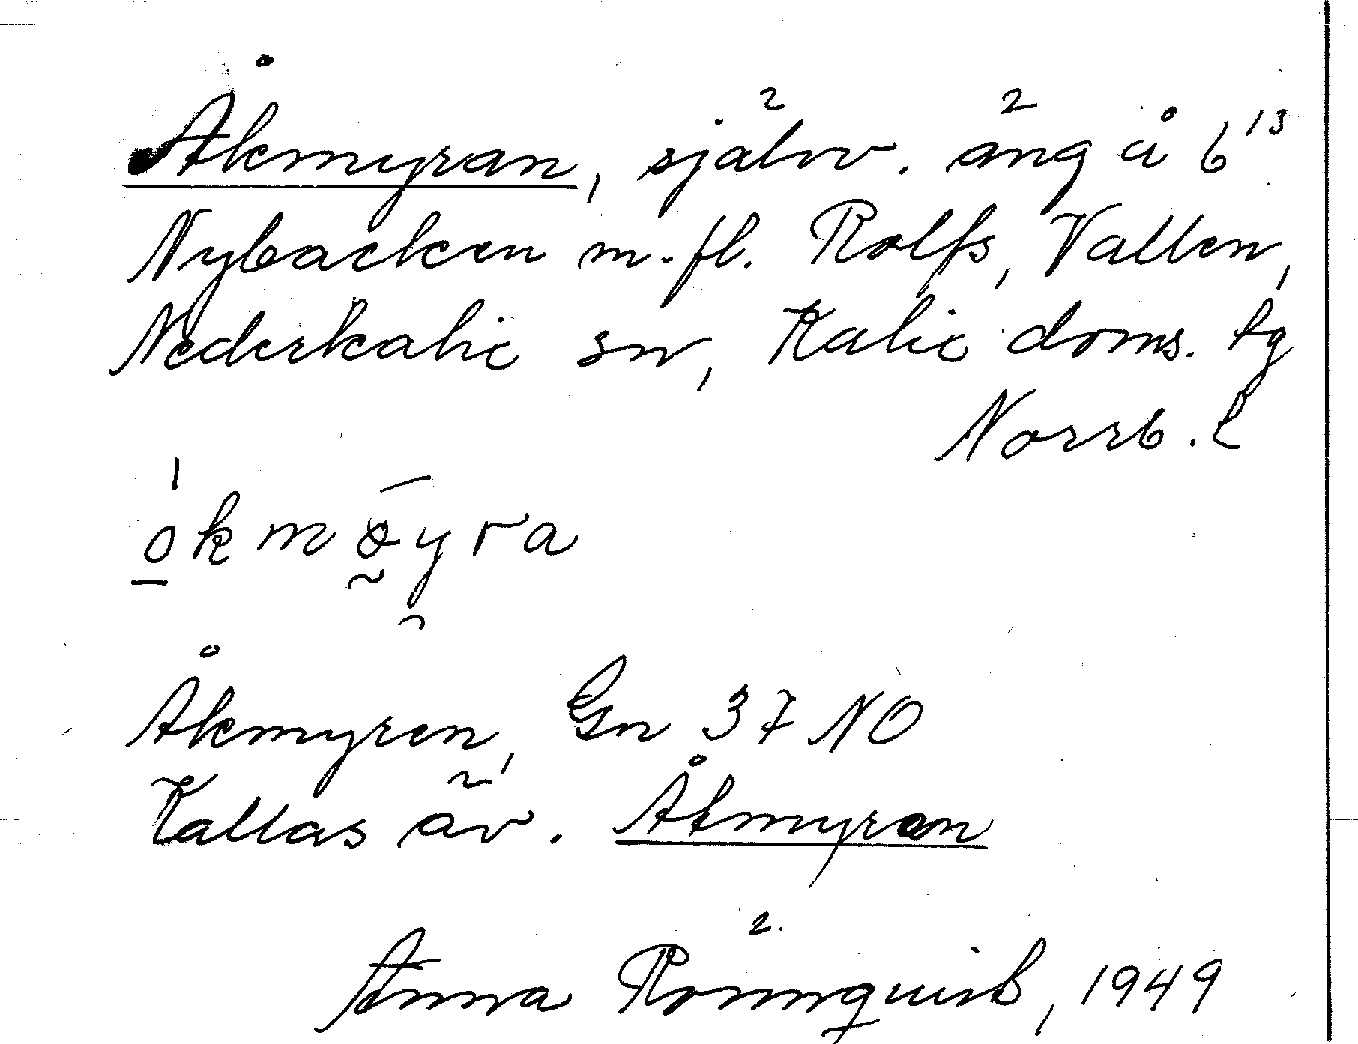 Åkmyran, självv. äng å 6¹³
Nybacken m.fl. Rolfs, Vallen,
Nederkalix sn, Kalix doms. tg
Norrb. l
ókmöyra
Åkmyren, Gn 37 NO
Kallas äv. Åtmyran
Anna Rönnquist, 1949